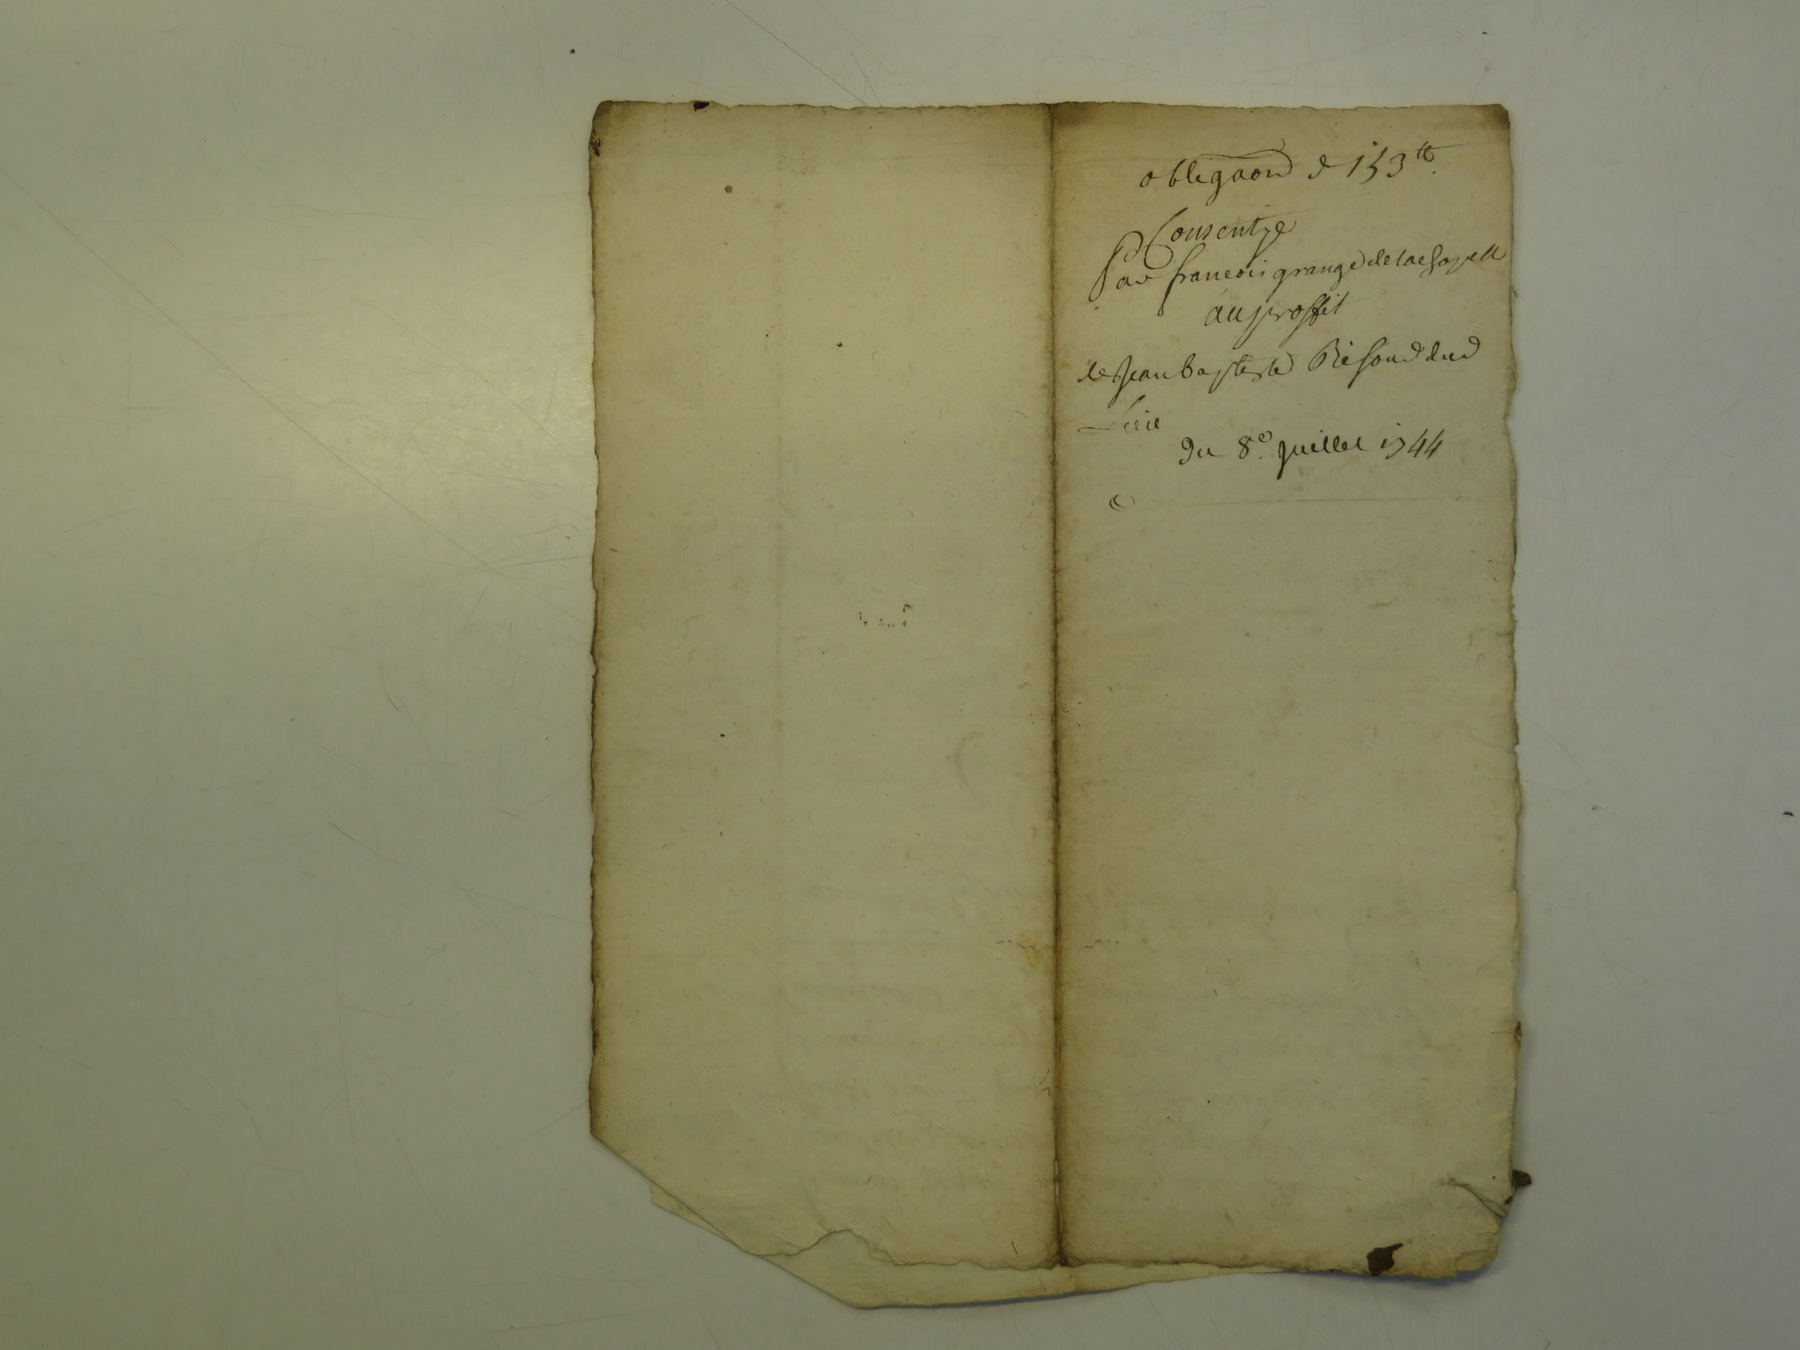 obligaon de 153 tt.
Consentye
Par francois grange de la chapelle
au proffit
de Jean baptiste dud
Lieu
du 8e. Juillet 1744